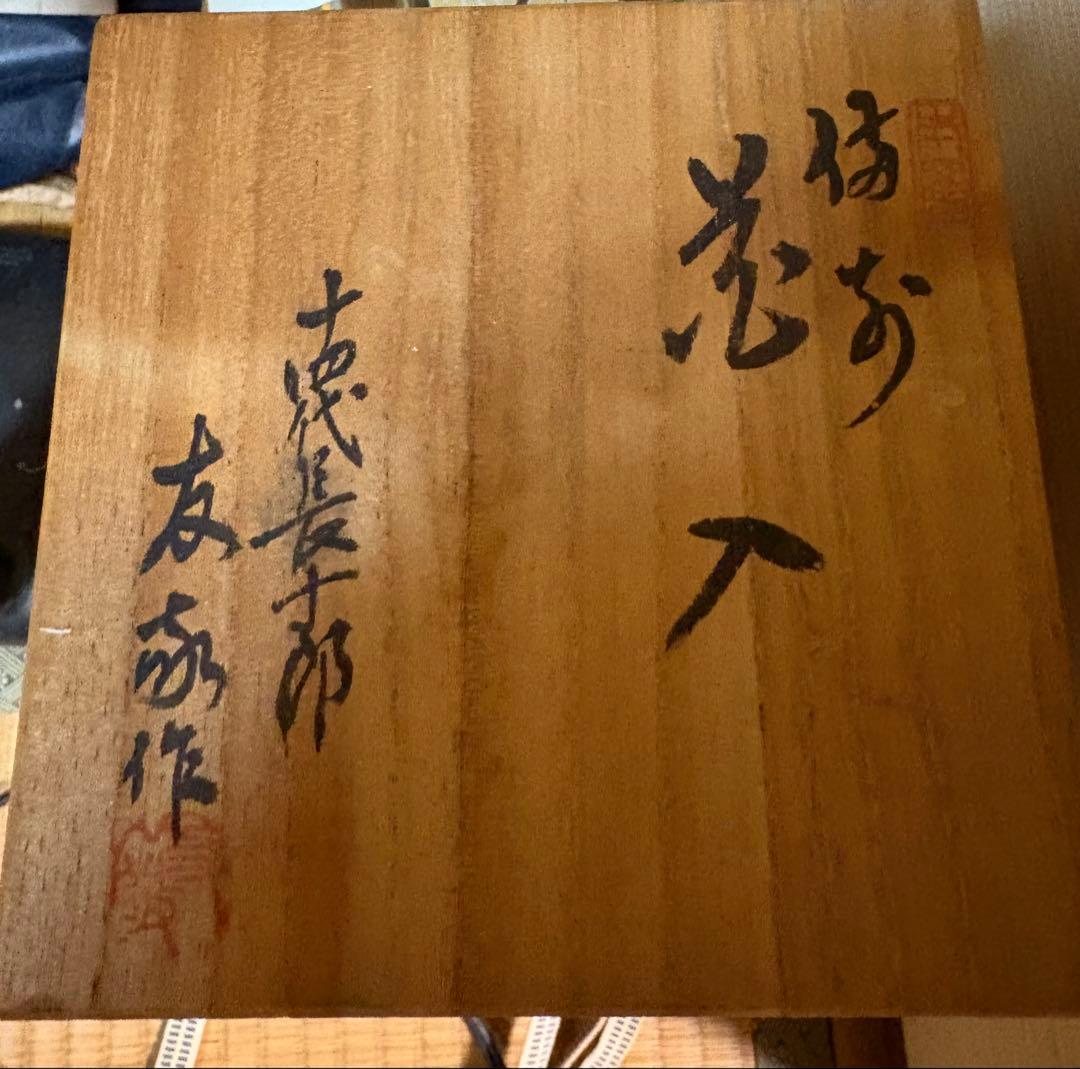 備前
花入
十四代長十郎
友敬作